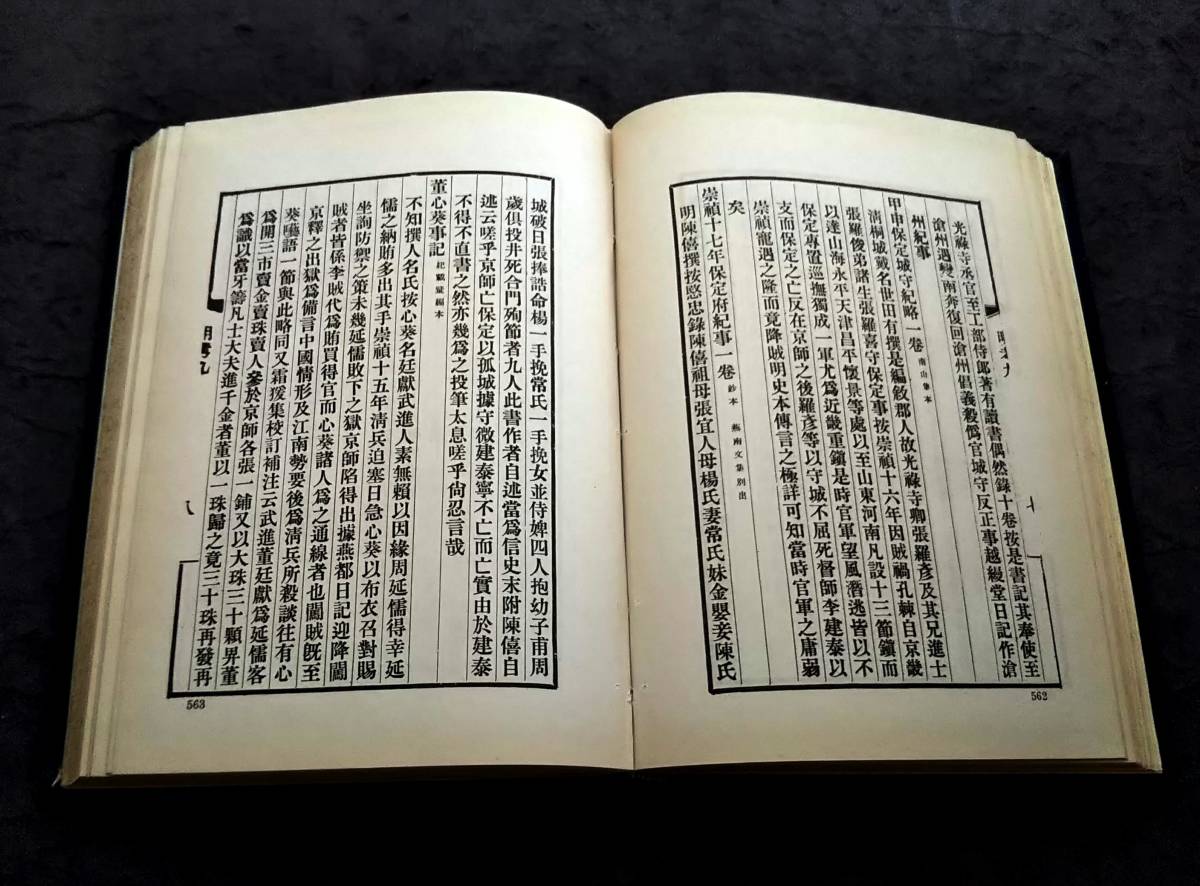 光祿寺丞官至工部侍郎著有讀書偶然錄十卷按是書記其奉使至
滄州遇變南奔復回滄州倡義殺僞官城守反正事越縵堂日記作滄
州紀事
甲申保定城守紀略一卷 南山集本
清桐城戴名世田有撰是編敘郡人故光祿寺卿張羅彥及其兄進士
張羅俊弟諸生張羅喜守保定事按崇禎十六年因賊禍孔棘自京畿
以達山海永平天津昌平懷景等處以至山東河南凡設十三節鎭而
保定專置巡撫獨成一軍尤爲近畿重鎭是時官軍望風潛逃皆以不
支而保定之亡反在京師之後羅彥等以守城不屈死督師李建泰以
崇禎寵遇之隆而竟降賊明史本傳言之極詳可知當時官軍之庸弱
矣
崇禎十七年保定府紀事一卷 鈔本 燕南文集別出
明陳僖撰按愍忠錄陳僖祖母張宜人母楊氏妻常氏妹金嬰妾陳氏
562
城破日張捧誥命楊一手挽常氏一手挽女並侍婢四人抱幼子甫周
歲俱投井死合門殉節者九人此書作者自述當爲信史末附陳僖自
述云嗟乎京師亡保定以孤城據守微建泰寧不亡而亡實由於建泰
不得不直書之然亦幾爲之投筆太息嗟乎尙忍言哉
董心葵事記 紀載彙編本
不知撰人名氏按心葵名廷獻武進人素無賴以因緣周延儒得幸延
儒之納賄多出其手崇禎十五年淸兵迫塞日急心葵以布衣召對賜
坐詢防禦之策未幾延儒敗下之獄京師陷得出據燕都日記迎降闖
賊者皆係李賊代爲賄買得官而心葵諸人爲之通線者也闖賊旣至
京釋之出獄爲備言中國情形及江南勢要後爲淸兵所殺談往有心
葵囈語一節與此略同又霜猨集校訂補注云武進董廷獻爲延儒客
爲開三市賣金賣珠賣人參於京師各張一鋪又以大珠三十顆畀董
爲識以當牙籌凡士大夫進千金者董以一珠歸之竟三十珠再發再
八
563